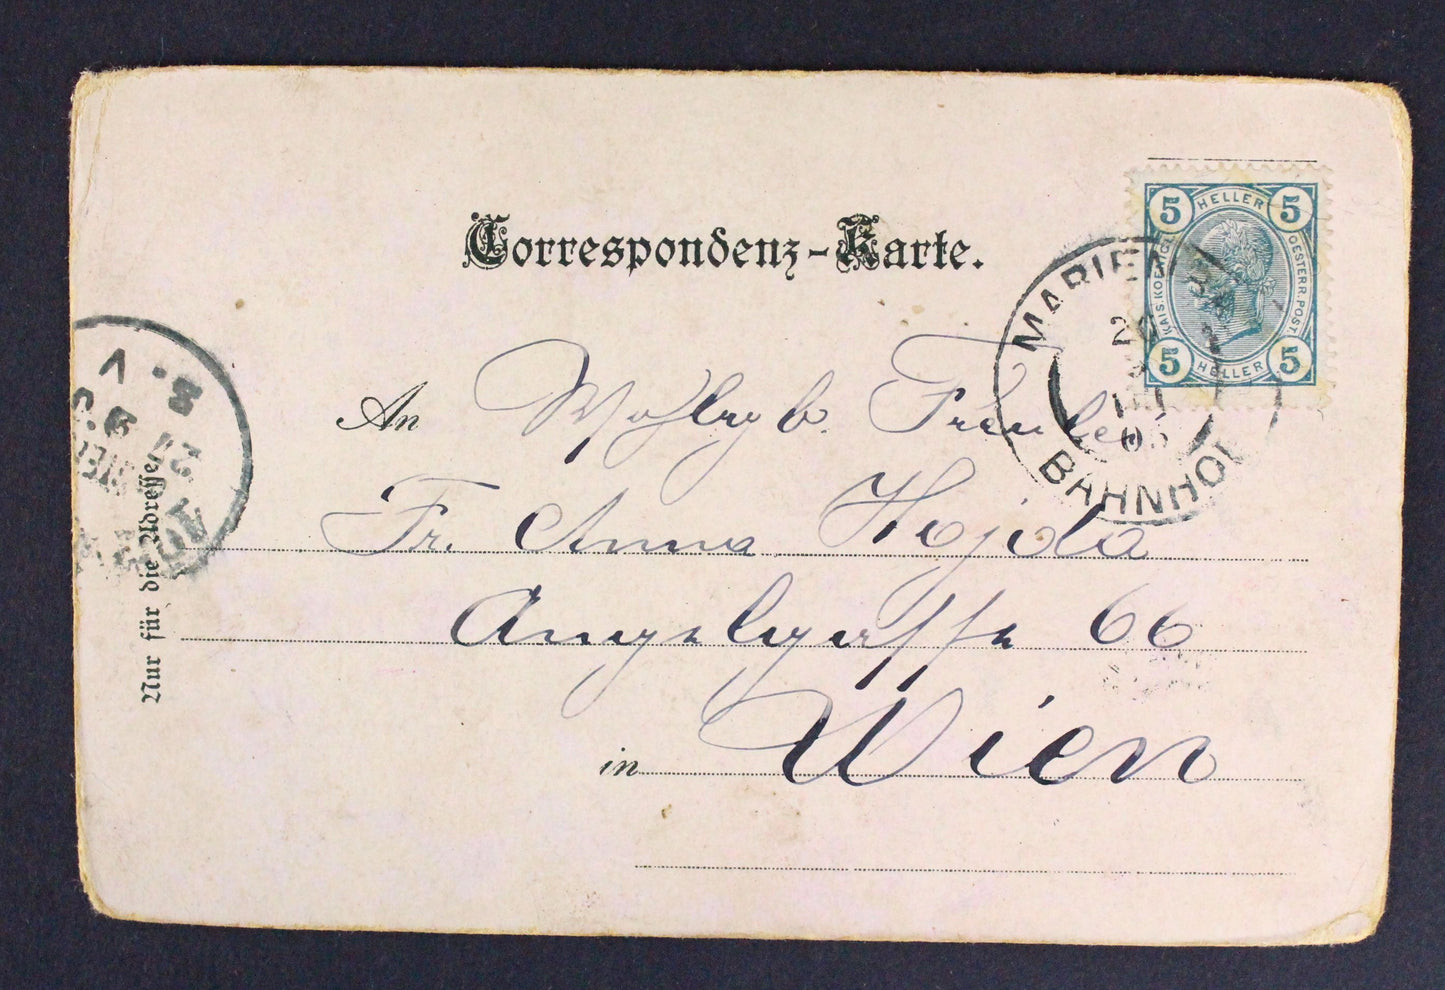 Correspondenz-Karte.
5 HELLER 5
KAIS. KOENIGL. OESTERR. POST
5 HELLER 5
MARIENBAD
BAHNHOF
An Wohlgeb. Fräulein
Fr. Anna Hajda
Angeligasse 66
in Wien
Nur für die Adresse.